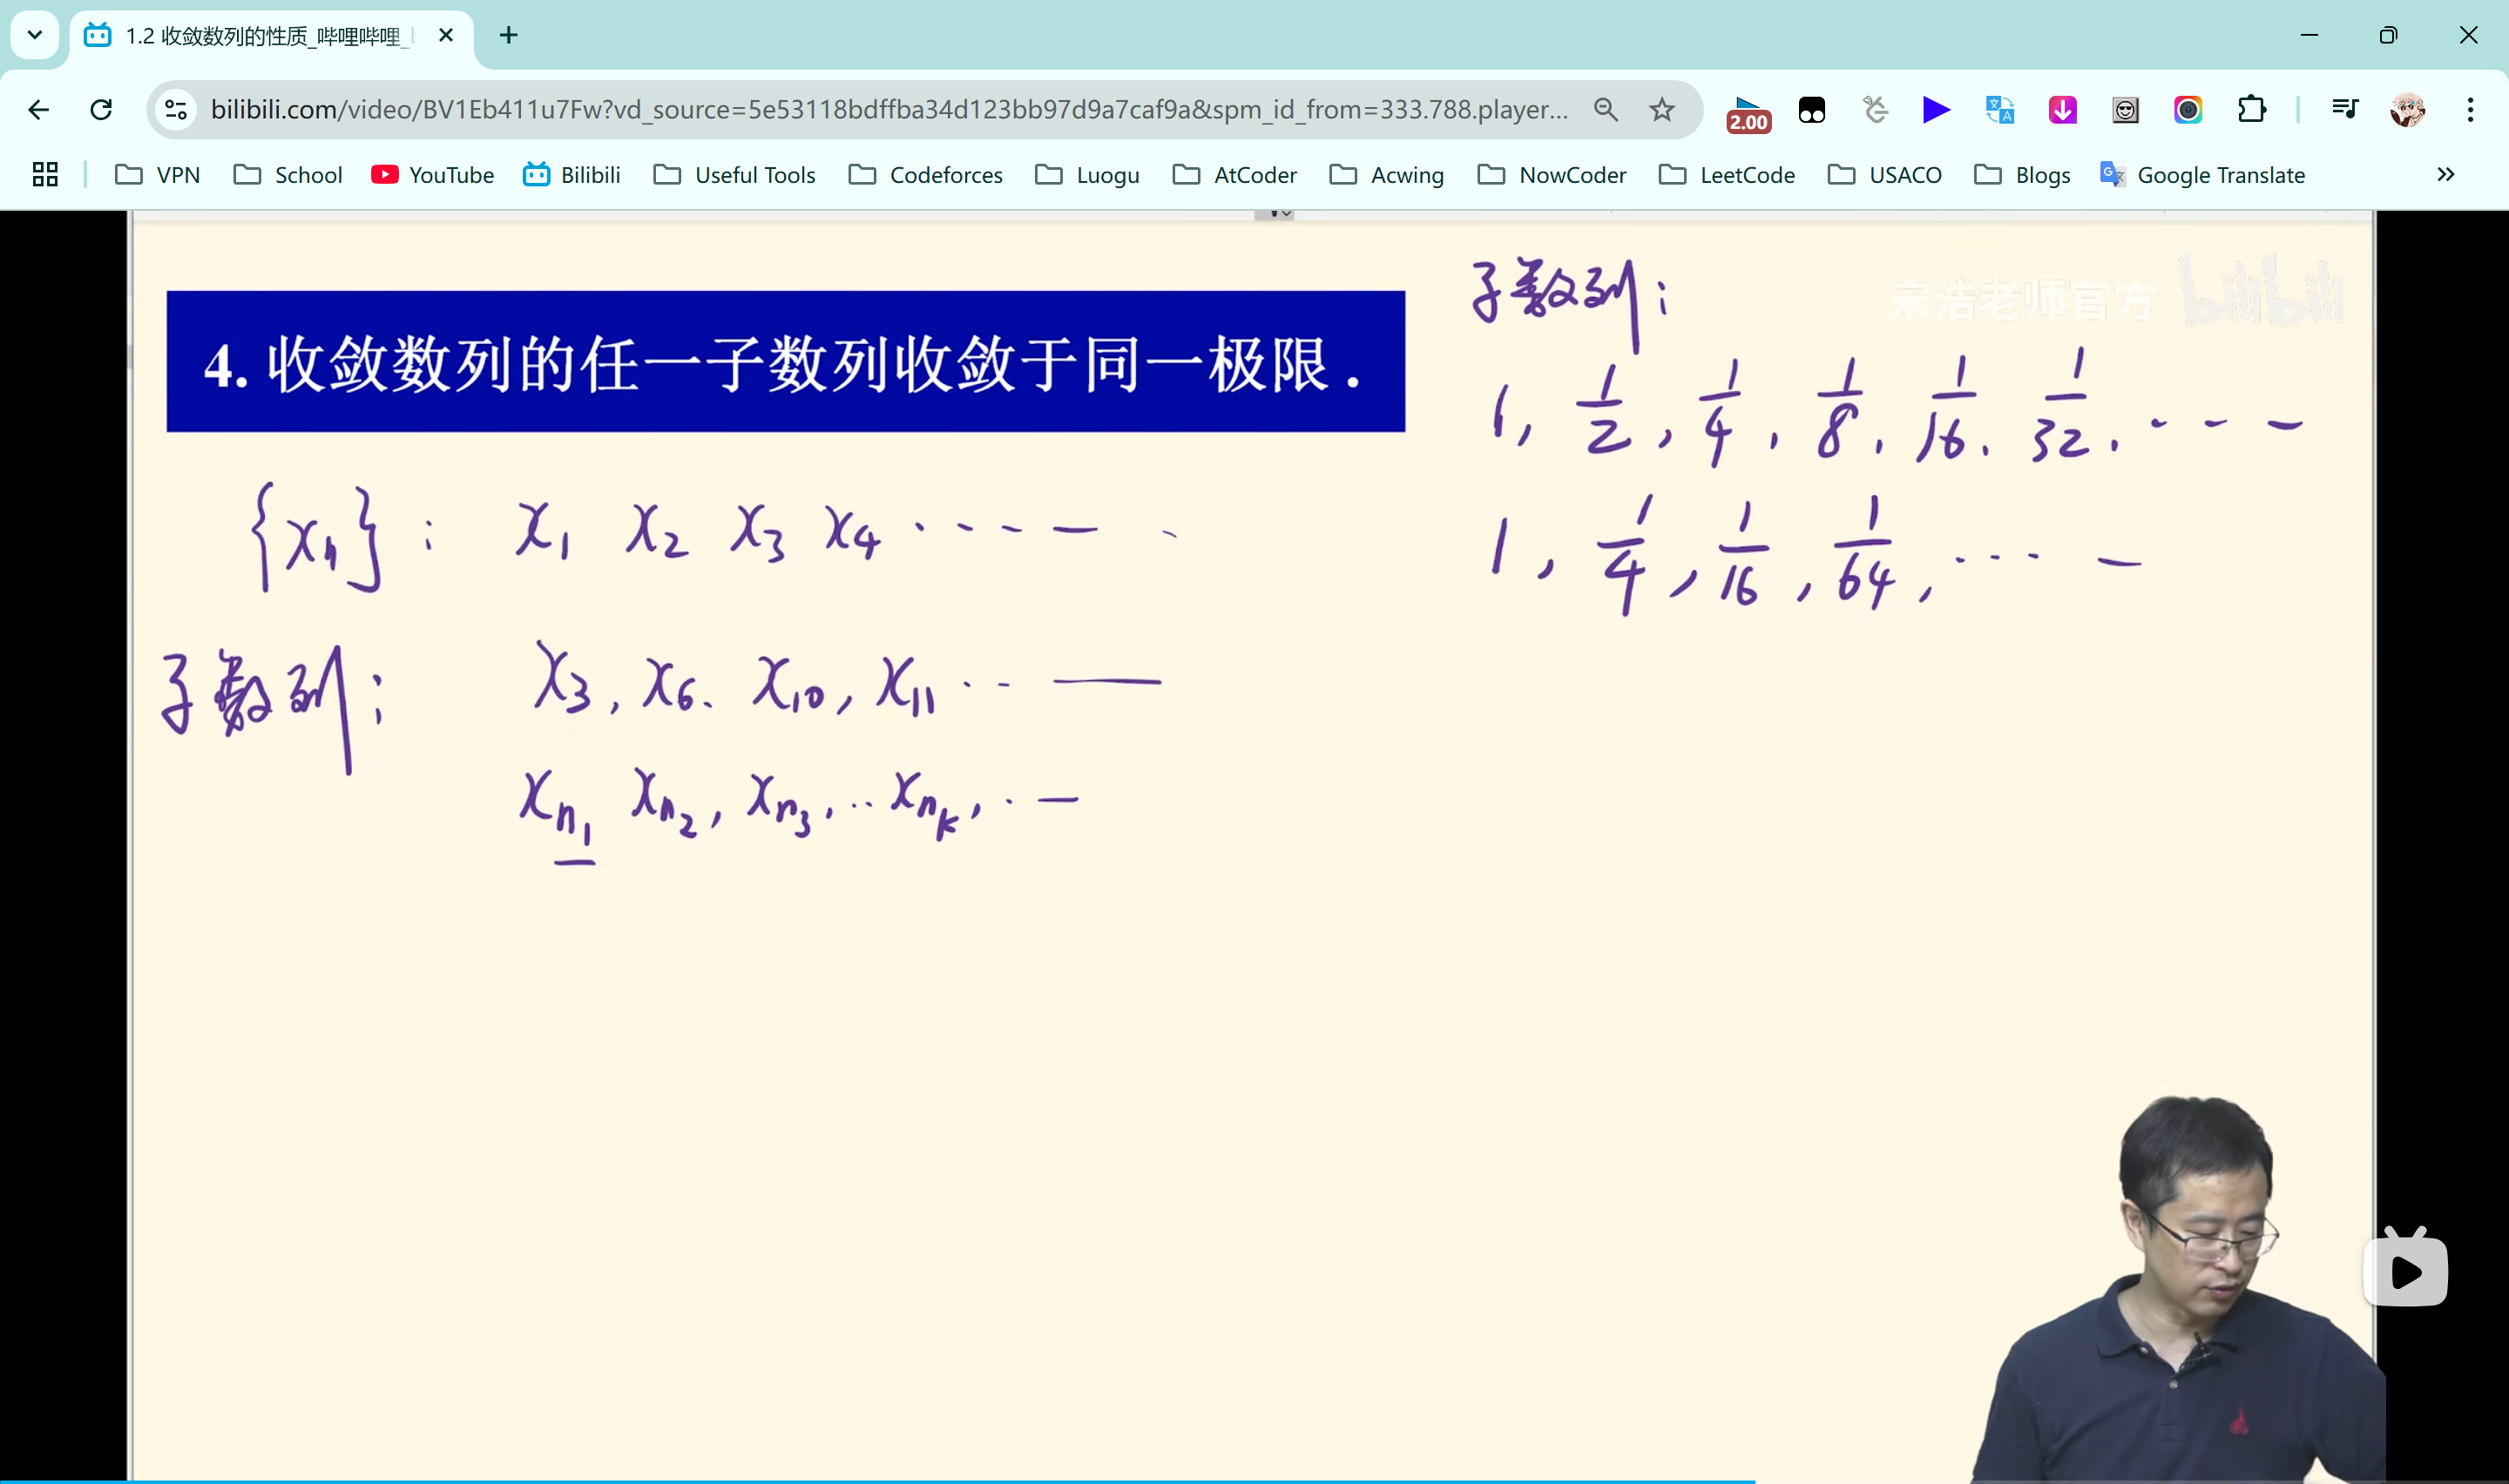 1.2 收敛数列的性质_哔哩哔哩_
bilibili.com/video/BV1Eb411u7Fw?vd_source=5e53118bdffba34d123bb97d9a7caf9a&spm_id_from=333.788.player...
2.00
VPN School YouTube Bilibili Useful Tools Codeforces Luogu AtCoder Acwing NowCoder LeetCode USACO Blogs Google Translate
宋浩老师官方 bilibili
4. 收敛数列的任一子数列收敛于同一极限.
{xn}: x1 x2 x3 x4 ····—
子数列: x3, x6、x10, x11 ··—
xn1 xn2, xn3, ·· xnk, ·—
子数列:
1, 1/2, 1/4, 1/8, 1/16, 1/32, ···
1, 1/4, 1/16, 1/64, ···—